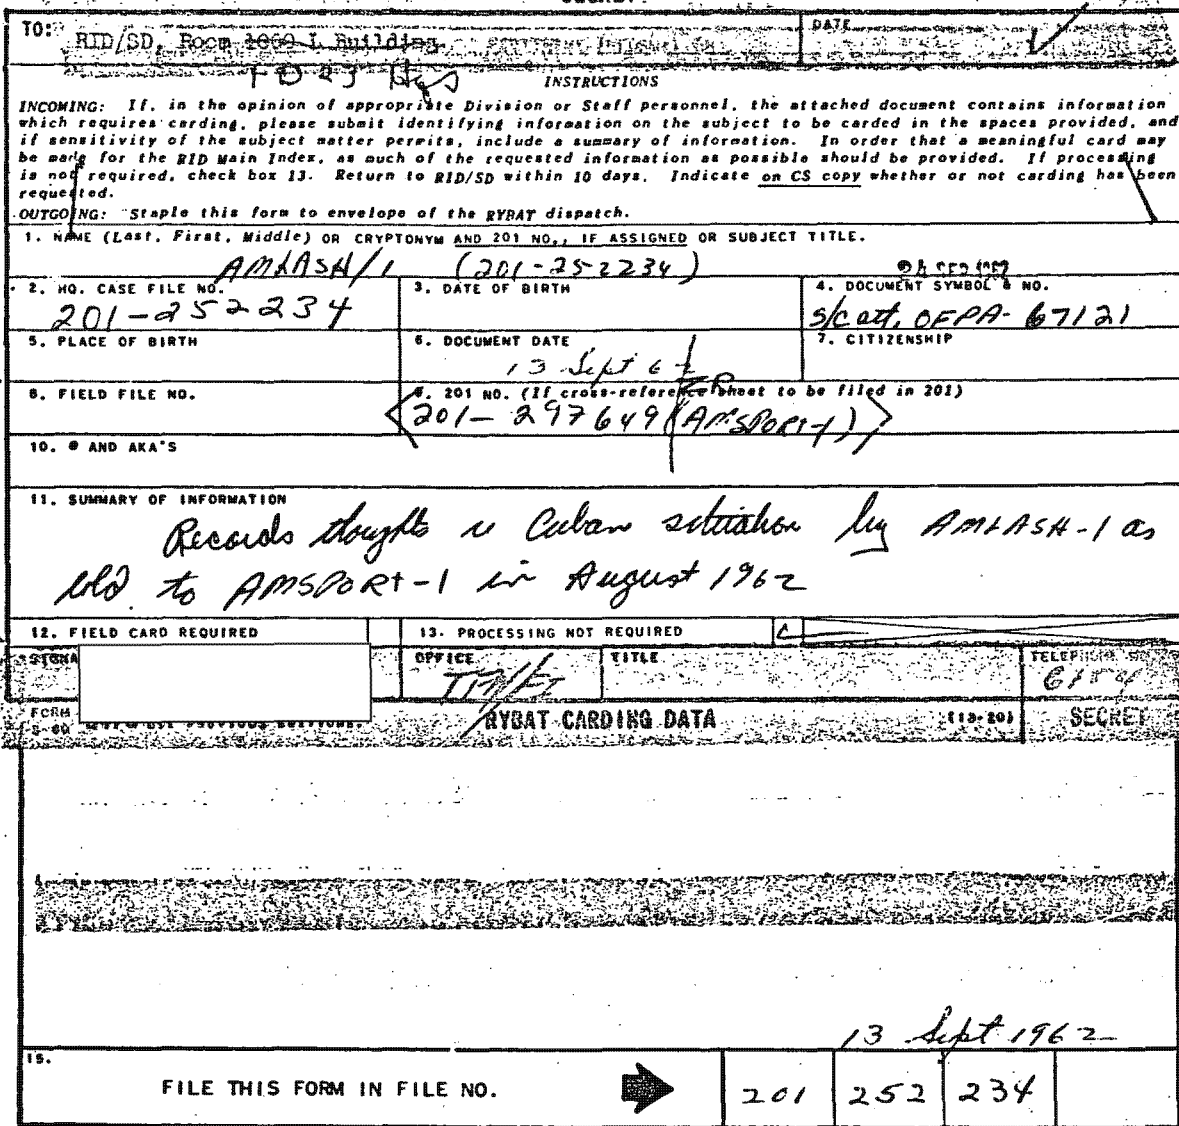 TO:
RID/SD, Room 1009 L Building
DATE
INSTRUCTIONS
INCOMING: If, in the opinion of appropriate Division or Staff personnel, the attached document contains information
which requires carding, please submit identifying information on the subject to be carded in the spaces provided, and
if sensitivity of the subject matter permits, include a summary of information. In order that a meaningful card may
be made for the RID Main Index, as much of the requested information as possible should be provided. If processing
is not required, check box 13. Return to RID/SD within 10 days. Indicate on CS copy whether or not carding has been
requested.
OUTGOING: Staple this form to envelope of the RYBAT dispatch.
1. NAME (Last, First, Middle) OR CRYPTONYM AND 201 NO., IF ASSIGNED OR SUBJECT TITLE.
AMLASH/1 (201-252234)
2. HQ. CASE FILE NO.
201-252234
3. DATE OF BIRTH
4. DOCUMENT SYMBOL & NO.
s/c att, OFPA-67121
5. PLACE OF BIRTH
6. DOCUMENT DATE
13 Sept 62
7. CITIZENSHIP
8. FIELD FILE NO.
9. 201 NO. (If cross-reference sheet to be filed in 201)
201-297649 (AMSPORT-1)
10. @ AND AKA'S
11. SUMMARY OF INFORMATION
Records thoughts re Cuban situation by AMLASH-1 as
told to AMSPORT-1 in August 1962
12. FIELD CARD REQUIRED
13. PROCESSING NOT REQUIRED
OFFICE
TITLE
FORM
RYBAT CARDING DATA
(13-20)
SECRET
13 Sept 1962
15.
FILE THIS FORM IN FILE NO.
201 252 234